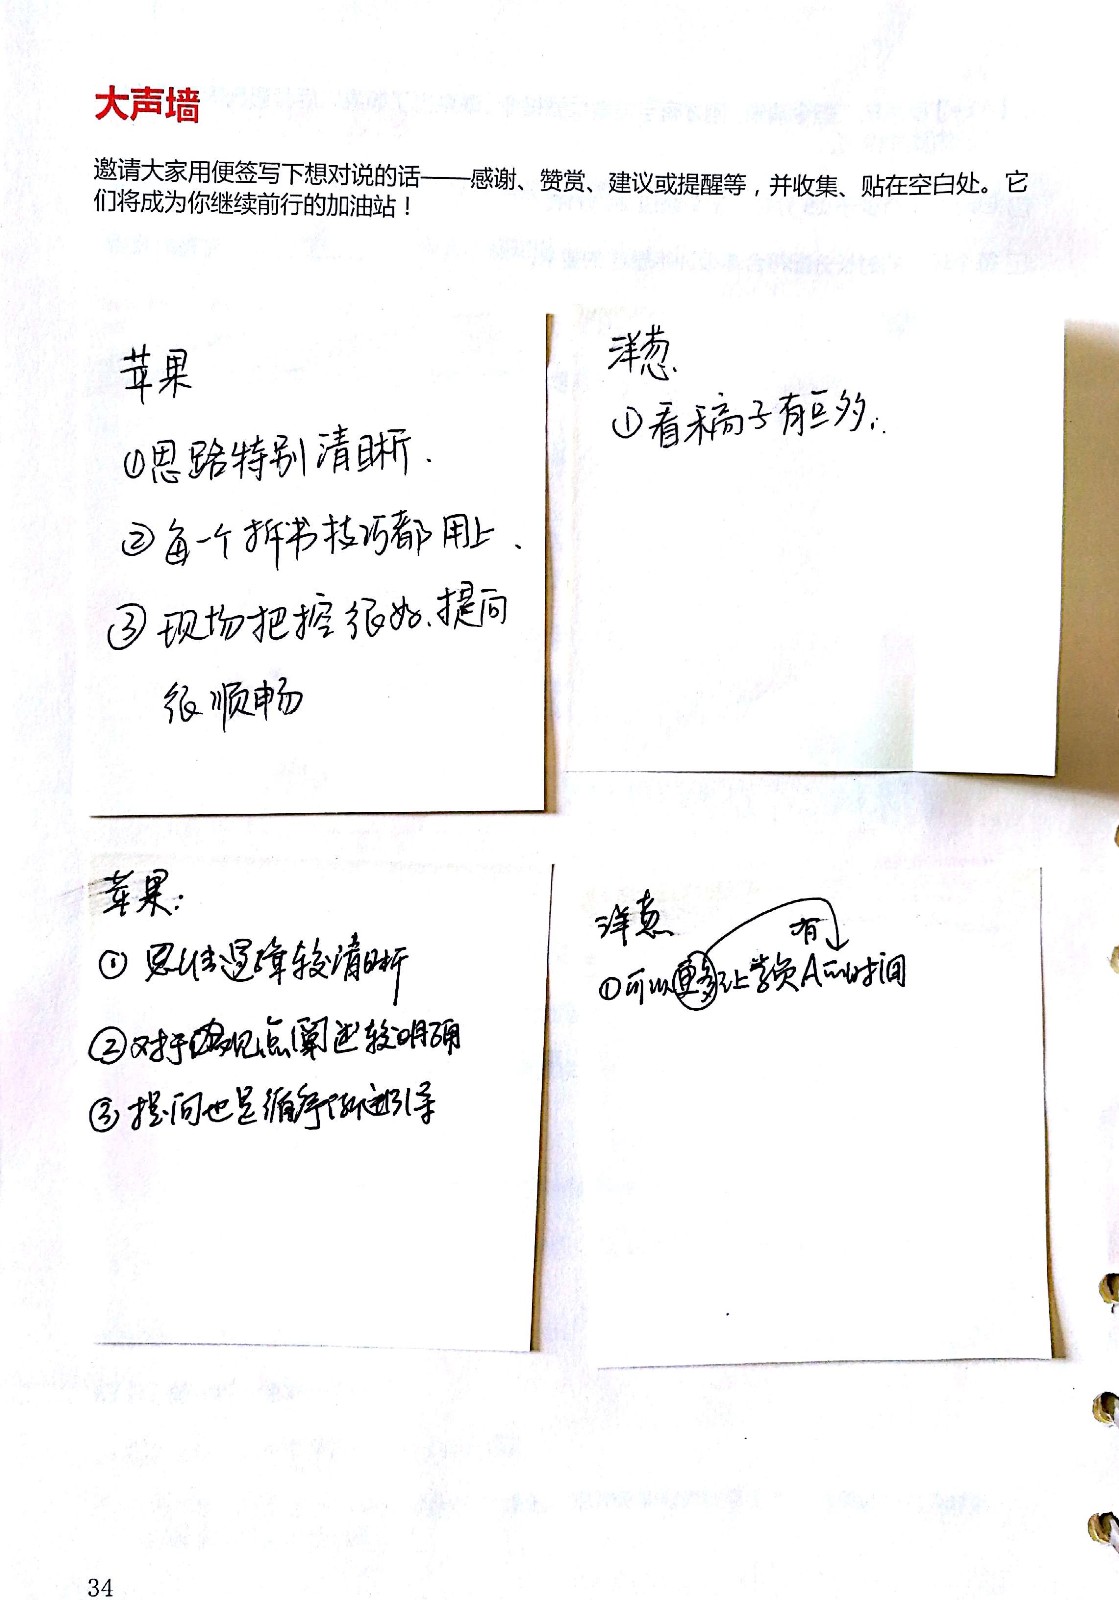 大声墙
邀请大家用便签写下想对说的话——感谢、赞赏、建议或提醒等，并收集、贴在空白处。它
们将成为你继续前行的加油站！
苹果
①思路特别清晰.
②每一个拆书技巧都用上、
③现场把控很好、提问
很顺畅
洋葱
①看稿子有巨多.
苹果:
①思维逻辑较清晰
②对于观点阐述较明确
③提问也是循序渐进引导
洋葱
有
①可以更多让学员A的时间
34